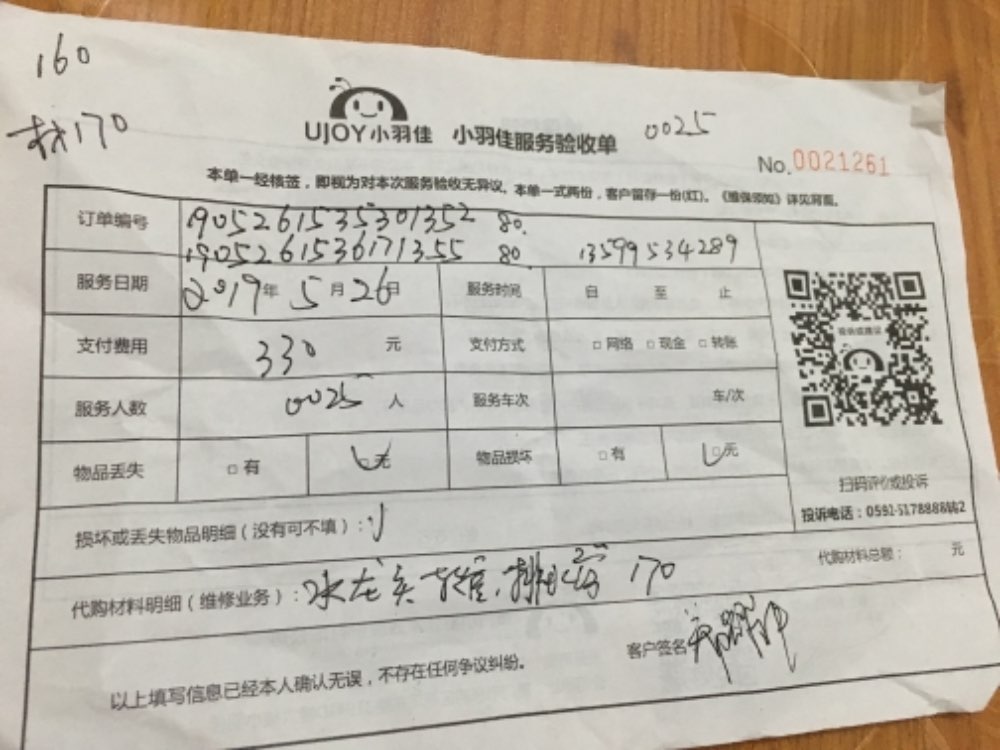 160
材170
UJOY小羽佳 小羽佳服务验收单 0025
No.0021261
本单一经核签，即视为对本次服务验收无异议。本单一式两份，客户留存一份(红)。《维保须知》详见背面。
订单编号 1905261535301352 80.
1905261536171355 80 13599534289
服务日期 2019年 5月 26日 服务时间 自 至 止
支付费用 330 元 支付方式 □网络 □现金 □转账
服务人数 0025 人 服务车次 车/次
物品丢失 □有 □无 物品损坏 □有 □无
扫码评价或投诉
损坏或丢失物品明细（没有可不填）：
代购材料明细（维修业务）：水龙头 170
代购材料总额： 元
客户签名
以上填写信息已经本人确认无误，不存在任何争议纠纷。